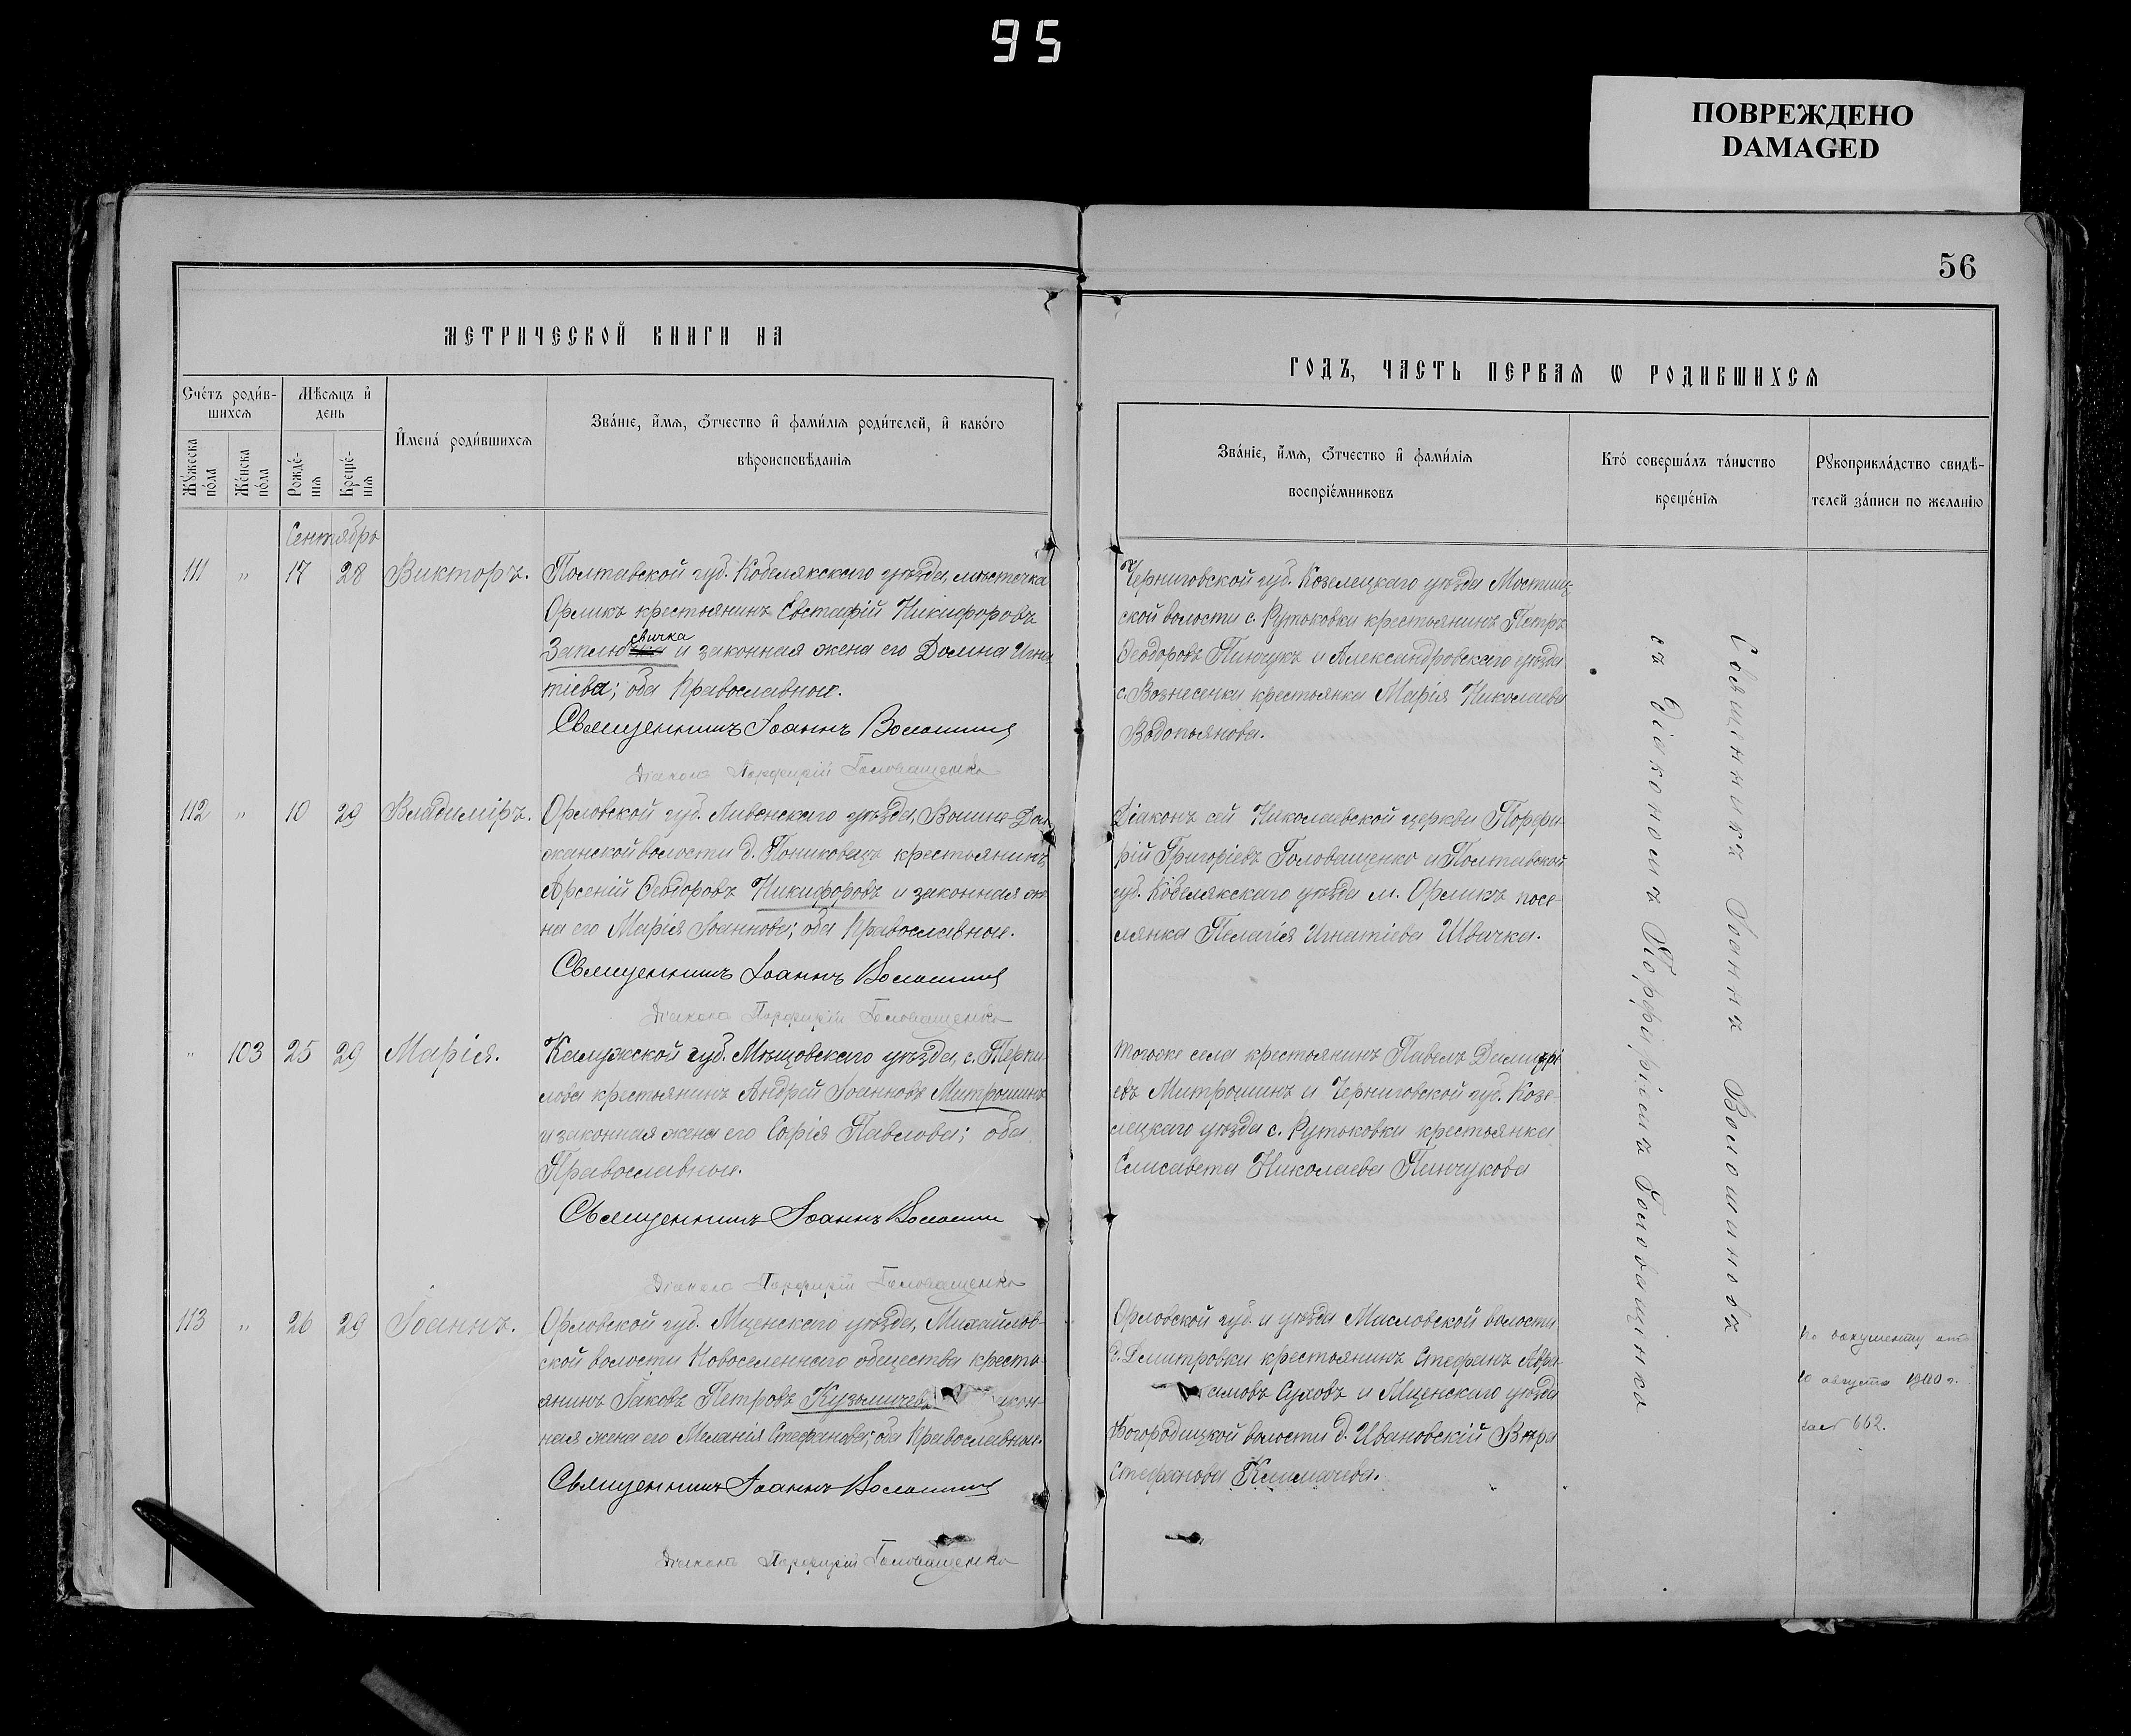 95
ПОВРЕЖДЕНО
DAMAGED
56
МЕТРИЧЕСКОЙ КНИГИ НА
ГОДЪ, ЧАСТЬ ПЕРВАЯ Ѡ РОДИВШИХСЯ
Счетъ родив-
шихся
Мѣсяцъ и
день
Имена родившихся
Званіе, имя, отчество и фамилія родителей, и какого
вѣроисповѣданія
Мужеска
пола
Женска
пола
Рожде-
нія
Креще-
нія
Званіе, имя, отчество и фамилія
воспріемниковъ
Кто совершалъ таинство
крещенія
Рукоприкладство свидѣ-
телей записи по желанію
Сентябрь
111 " 17 28 Викторъ.
Полтавской губ. Кобелякскаго уѣзда, мѣстечка
Орликъ крестьянинъ Евстафій Никифоровъ
свичка
Заплю и законная жена его Домна Игна
тіева; оба Православные.
Священникъ Іоаннъ Волошинъ
Діаконъ Порфирій Головащенко
Черниговской губ. Козелецкаго уѣзда Мостищ-
ской волости с. Рутьковки крестьянинъ Петръ
Ѳеодоровъ Пинчукъ и Александровскаго уѣзда
с. Вознесенки крестьянка Марія Николаева
Водопьянова.
112 " 10 29 Владиміръ.
Орловской губ. Ливенскаго уѣзда, Вышне-Дол
жанской волости д. Пониковецъ крестьянинъ
Арсеній Ѳеодоровъ Никифоровъ и законная же
на его Марія Іоаннова; оба Православные.
Священникъ Іоаннъ Волошинъ
Діаконъ Порфирій Головащенко
Діаконъ сей Николаевской церкви Порфи-
рій Григоріевъ Головащенко и Полтавской
губ. Кобелякскаго уѣзда м. Орликъ посе-
лянка Пелагія Игнатіева Швачка.
" 103 25 29 Марія.
Калужской губ. Мѣщовскаго уѣзда, с. Терпи-
лова крестьянинъ Андрей Іоанновъ Митрошинъ
и законная жена его Софія Павлова; оба
Православные.
Священникъ Іоаннъ Волошин
Діаконъ Порфирій Головащенко
Тогоже села крестьянинъ Павелъ Димитрі-
евъ Митрошинъ и Черниговской губ. Козе-
лецкаго уѣзда с. Рутьковки крестьянка
Елисавета Николаева Пинчукова
113 " 26 29 Іоаннъ.
Орловской губ. Мценскаго уѣзда, Михайлов-
ской волости Новоселеннаго общества кресть-
янинъ Іаковъ Петровъ Кузьмичевъ
ная жена его Меланія Стефанова; оба Православные.
Священникъ Іоаннъ Волошинъ
Діаконъ Порфирій Головащенко
Орловской губ. и уѣзда Мисловской волости
с. Дмитровки крестьянинъ Стефанъ
Суховъ и Мценскаго уѣзда
Богородицкой волости д. Ивановскій Вѣра
Стефанова Климачева.
Священникъ Іоаннъ Волошиновъ
съ Діакономъ Порфиріемъ Головащенко
По документу отъ
10 августа 1940 г.
662.